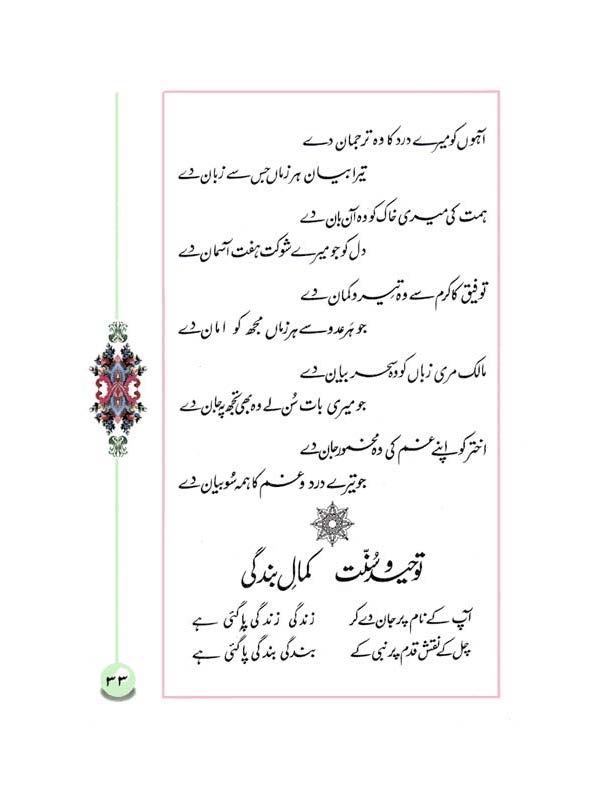 آہوں کو میرے درد کا وہ ترجمان دے
تیرا بیان ہر زماں جس سے زبان دے
ہمت کی میری خاک کو وہ آن بان دے
دل کو جو میرے شوکت ہفت آسمان دے
توفیق کا کرم سے وہ تیر و کمان دے
جو ہر عدو سے ہر زماں مجھ کو امان دے
مالک مری زباں کو وہ سحر بیان دے
جو میری بات سُن لے وہ بھی تجھ پہ جان دے
اختر کو اپنے غم کی وہ مخمور جان دے
جو تیرے درد و غم کا ہمہ سُو بیان دے
توحید و سُنّت کمالِ بندگی
آپ کے نام پر جان دے کر زندگی زندگی پاگئی ہے
چل کے نقش قدم پر نبی کے بندگی بندگی پاگئی ہے
۳۳